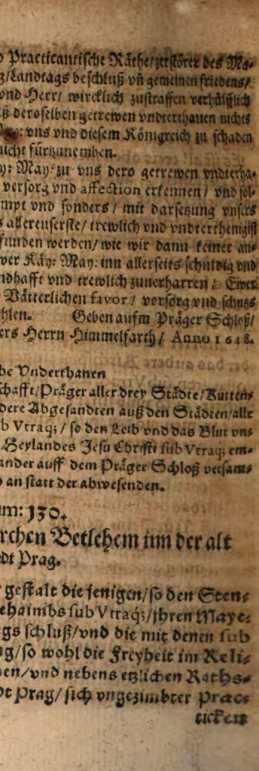 Practicantische Räthe/zerstörer des Ma-
z/Landtags beschluß vñ gemeinen friedens/
vnd Herr/ wircklich zustraffen verhülfflich
ß deroselben getrewen vnderthanen nichts
vns vnd diesem Königreich zu schaden
nicht fürzunemben.
y: May: zu vns dero getrewen vndertha-
versorg vnd affection erkennen/ vnd sol-
mpt vnd sonders/ mit darsetzung vnsers
allereusserste/ trewlich vnd vnderthenigst
funden werden/ wie wir dann keiner an-
wer Käy: May: inn allerseits schuldig vnd
ndhafft vnd trewlich zuuerharren/ Ewer
Vätterlichen favor/ versorg vnd schutz
hlen. Geben auffm Präger Schloß/
ers Herrn Himmelfarth/ Anno 1618.
he Vnderthanen
chafft/Präger aller drey Städte/Kutten-
dere Abgesandten auß den Städten/alle
b Vtraq;/ so den Leib vnd das Blut vns
Heylandes Jesu Christi sub Vtraq; em-
ander auff dem Präger Schloß versam-
an statt der abwesenden.
um: 130.
rchen Betlehem inn der alt
dt Prag.
gestalt die jenigen/so den Sten-
ehaimbs sub Vtraq;/ihren Maye-
gs schluß/vnd die mit denen sub
ng/so wohl die Freyheit im Reli-
en/vnd nebens etzlichen Raths-
dt Prag/ sich vngezimbter Prac-
ticken